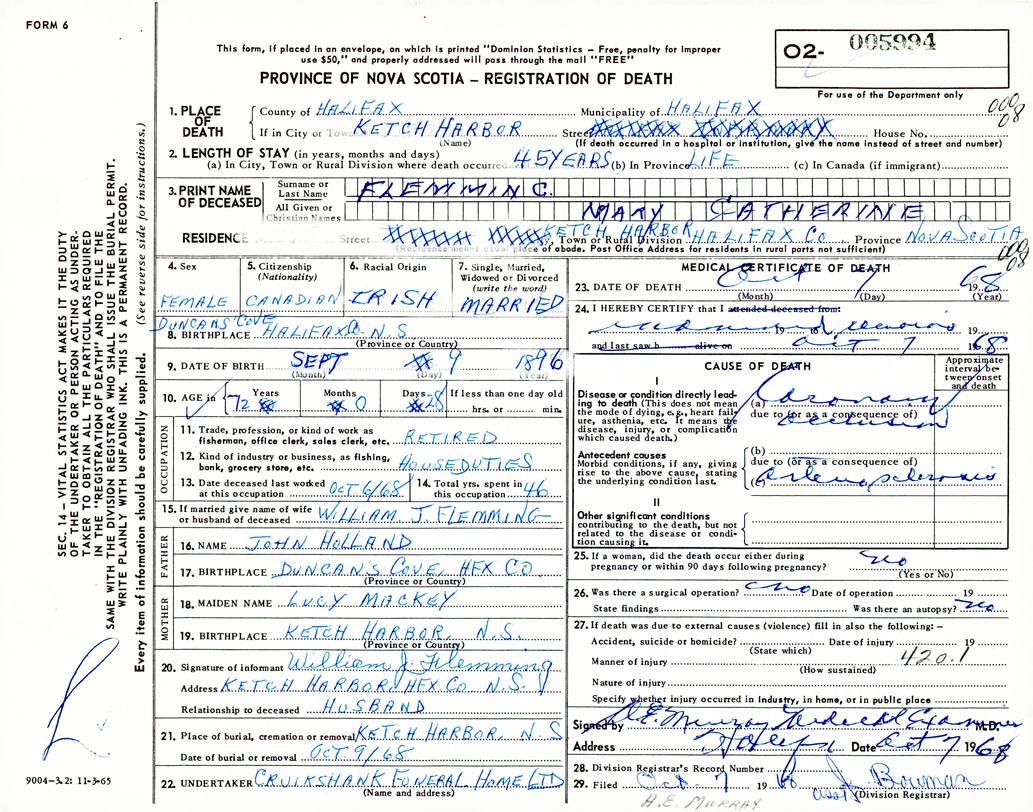 FORM 6
This form, if placed in an envelope, on which is printed "Dominion Statistics – Free, penalty for improper
use $50," and properly addressed will pass through the mail "FREE"
O2- 005994
For use of the Department only
PROVINCE OF NOVA SCOTIA – REGISTRATION OF DEATH
1. PLACE OF DEATH
County of HALIFAX Municipality of HALIFAX
If in City or Town KETCH HARBOR Street House No.
(Name) (If death occurred in a hospital or institution, give the name instead of street and number)
2. LENGTH OF STAY (in years, months and days)
(a) In City, Town or Rural Division where death occurred 45 YEARS (b) In Province LIFE (c) In Canada (if immigrant)
3. PRINT NAME OF DECEASED
Surname or Last Name FLEMMING
All Given or Christian Names MARY CATHERINE
RESIDENCE Street KETCH HARBOR, Town or Rural Division HALIFAX Co. Province NOVA SCOTIA
(Residence means usual place of abode. Post Office Address for residents in rural parts not sufficient)
4. Sex FEMALE
5. Citizenship (Nationality) CANADIAN
6. Racial Origin IRISH
7. Single, Married, Widowed or Divorced (write the word) MARRIED
DUNCANS' COVE
8. BIRTHPLACE HALIFAX Co. N.S.
(Province or Country)
9. DATE OF BIRTH SEPT 9 1896
(Month) (Day) (Year)
10. AGE in Years 72 Months 0 Days 28 If less than one day old hrs. or min.
OCCUPATION
11. Trade, profession or kind of work as fisherman, office clerk, sales clerk, etc. RETIRED
12. Kind of industry or business, as fishing, bank, grocery store, etc. HOUSEDUTIES
13. Date deceased last worked at this occupation OCT 6/68 14. Total yrs. spent in this occupation 46
15. If married give name of wife or husband of deceased WILLIAM J. FLEMMING
FATHER
16. NAME JOHN HOLLAND
17. BIRTHPLACE DUNCAN'S COVE, HFX CO.
(Province or Country)
MOTHER
18. MAIDEN NAME LUCY MACKEY
19. BIRTHPLACE KETCH HARBOR, N.S.
(Province or Country)
20. Signature of informant William J. Flemming
Address KETCH HARBOR HFX CO N.S.
Relationship to deceased HUSBAND
21. Place of burial, cremation or removal KETCH HARBOR, N.S
Date of burial or removal OCT 9/68
22. UNDERTAKER CRUIKSHANK FUNERAL HOME LTD
(Name and address)
MEDICAL CERTIFICATE OF DEATH
23. DATE OF DEATH Oct 7 1968
(Month) (Day) (Year)
24. I HEREBY CERTIFY that I attended deceased from:
19 to 19
and last saw h alive on Oct 7 1968
CAUSE OF DEATH
Approximate interval between onset and death
I
Disease or condition directly leading to death (This does not mean the mode of dying, e.g., heart failure, asthenia, etc. It means the disease, injury, or complication which caused death.)
(a) Coronary
due to (or as a consequence of)
occlusion
Antecedent causes
Morbid conditions, if any, giving rise to the above cause, stating the underlying condition last.
(b)
due to (or as a consequence of)
(c) Arteriosclerosis
II
Other significant conditions contributing to the death, but not related to the disease or condition causing it.
25. If a woman, did the death occur either during pregnancy or within 90 days following pregnancy? no
(Yes or No)
26. Was there a surgical operation? no Date of operation 19
State findings Was there an autopsy? no
27. If death was due to external causes (violence) fill in also the following: –
Accident, suicide or homicide? Date of injury 19
(State which)
Manner of injury 420.1
(How sustained)
Nature of injury
Specify whether injury occurred in Industry, in home, or in public place
Signed by A.E. Murray Medical Examiner M.D.
Address Halifax Date Oct 7 1968
28. Division Registrar's Record Number
29. Filed Oct. 7 1968 J. Bowman
asst (Division Registrar)
A.E. MURRAY
SEC. 14 – VITAL STATISTICS ACT MAKES IT THE DUTY
OF THE UNDERTAKER OR PERSON ACTING AS UNDER-
TAKER TO OBTAIN ALL THE PARTICULARS REQUIRED
IN THE "REGISTRATION OF DEATH" AND FILE THE
SAME WITH THE DIVISION REGISTRAR WHO SHALL ISSUE THE BURIAL PERMIT.
WRITE PLAINLY WITH UNFADING INK. THIS IS A PERMANENT RECORD.
Every item of information should be carefully supplied. (See reverse side for instructions.)
9004-3.2: 11-3-65